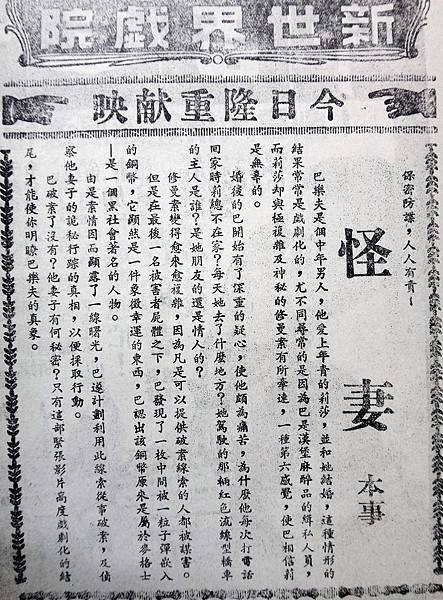 新世界戲院
今日隆重献映
保密防諜，人人有責！
怪妻 本事
巴樂夫是個中年男人，他愛上年青的莉莎，並和她結婚，這種情形的
結果常常是戲劇化的，尤不同尋常的是因為巴是漢堡麻醉品的緝私人員，
而莉莎却與極複雜及神秘的修曼案有所牽連，一種第六感覺，使巴相信莉
是無辜的。
婚後的巴開始有了深重的疑心，使他頗為痛苦，為什麼他每次打電話
回家時莉總不在家？每天她去了什麼地方？她駕駛的那輛紅色流線型橋車
的主人是誰？是她朋友的還是情人的？
修曼案變得愈來愈複雜，因為凡是可以提供破案線索的人都被謀害。
但是在最後一名被害者屍體之下，巴發現了一枚中間被一粒子彈嵌入
的銅幣，它顯然是一件象徵幸運的東西，巴認出該銅幣原來是屬於麥格士
—是一個黑社會著名的人物。
由是案情因而顯露了一線曙光，巴遂計劃利用此線索從事破案，及偵
察他妻子的詭秘行踪的真相，以便採取行動。
巴破案了沒有？他妻子有何秘密？只有這部緊張影片高度戲劇化的結
尾，才能使你明瞭巴樂夫的真象。